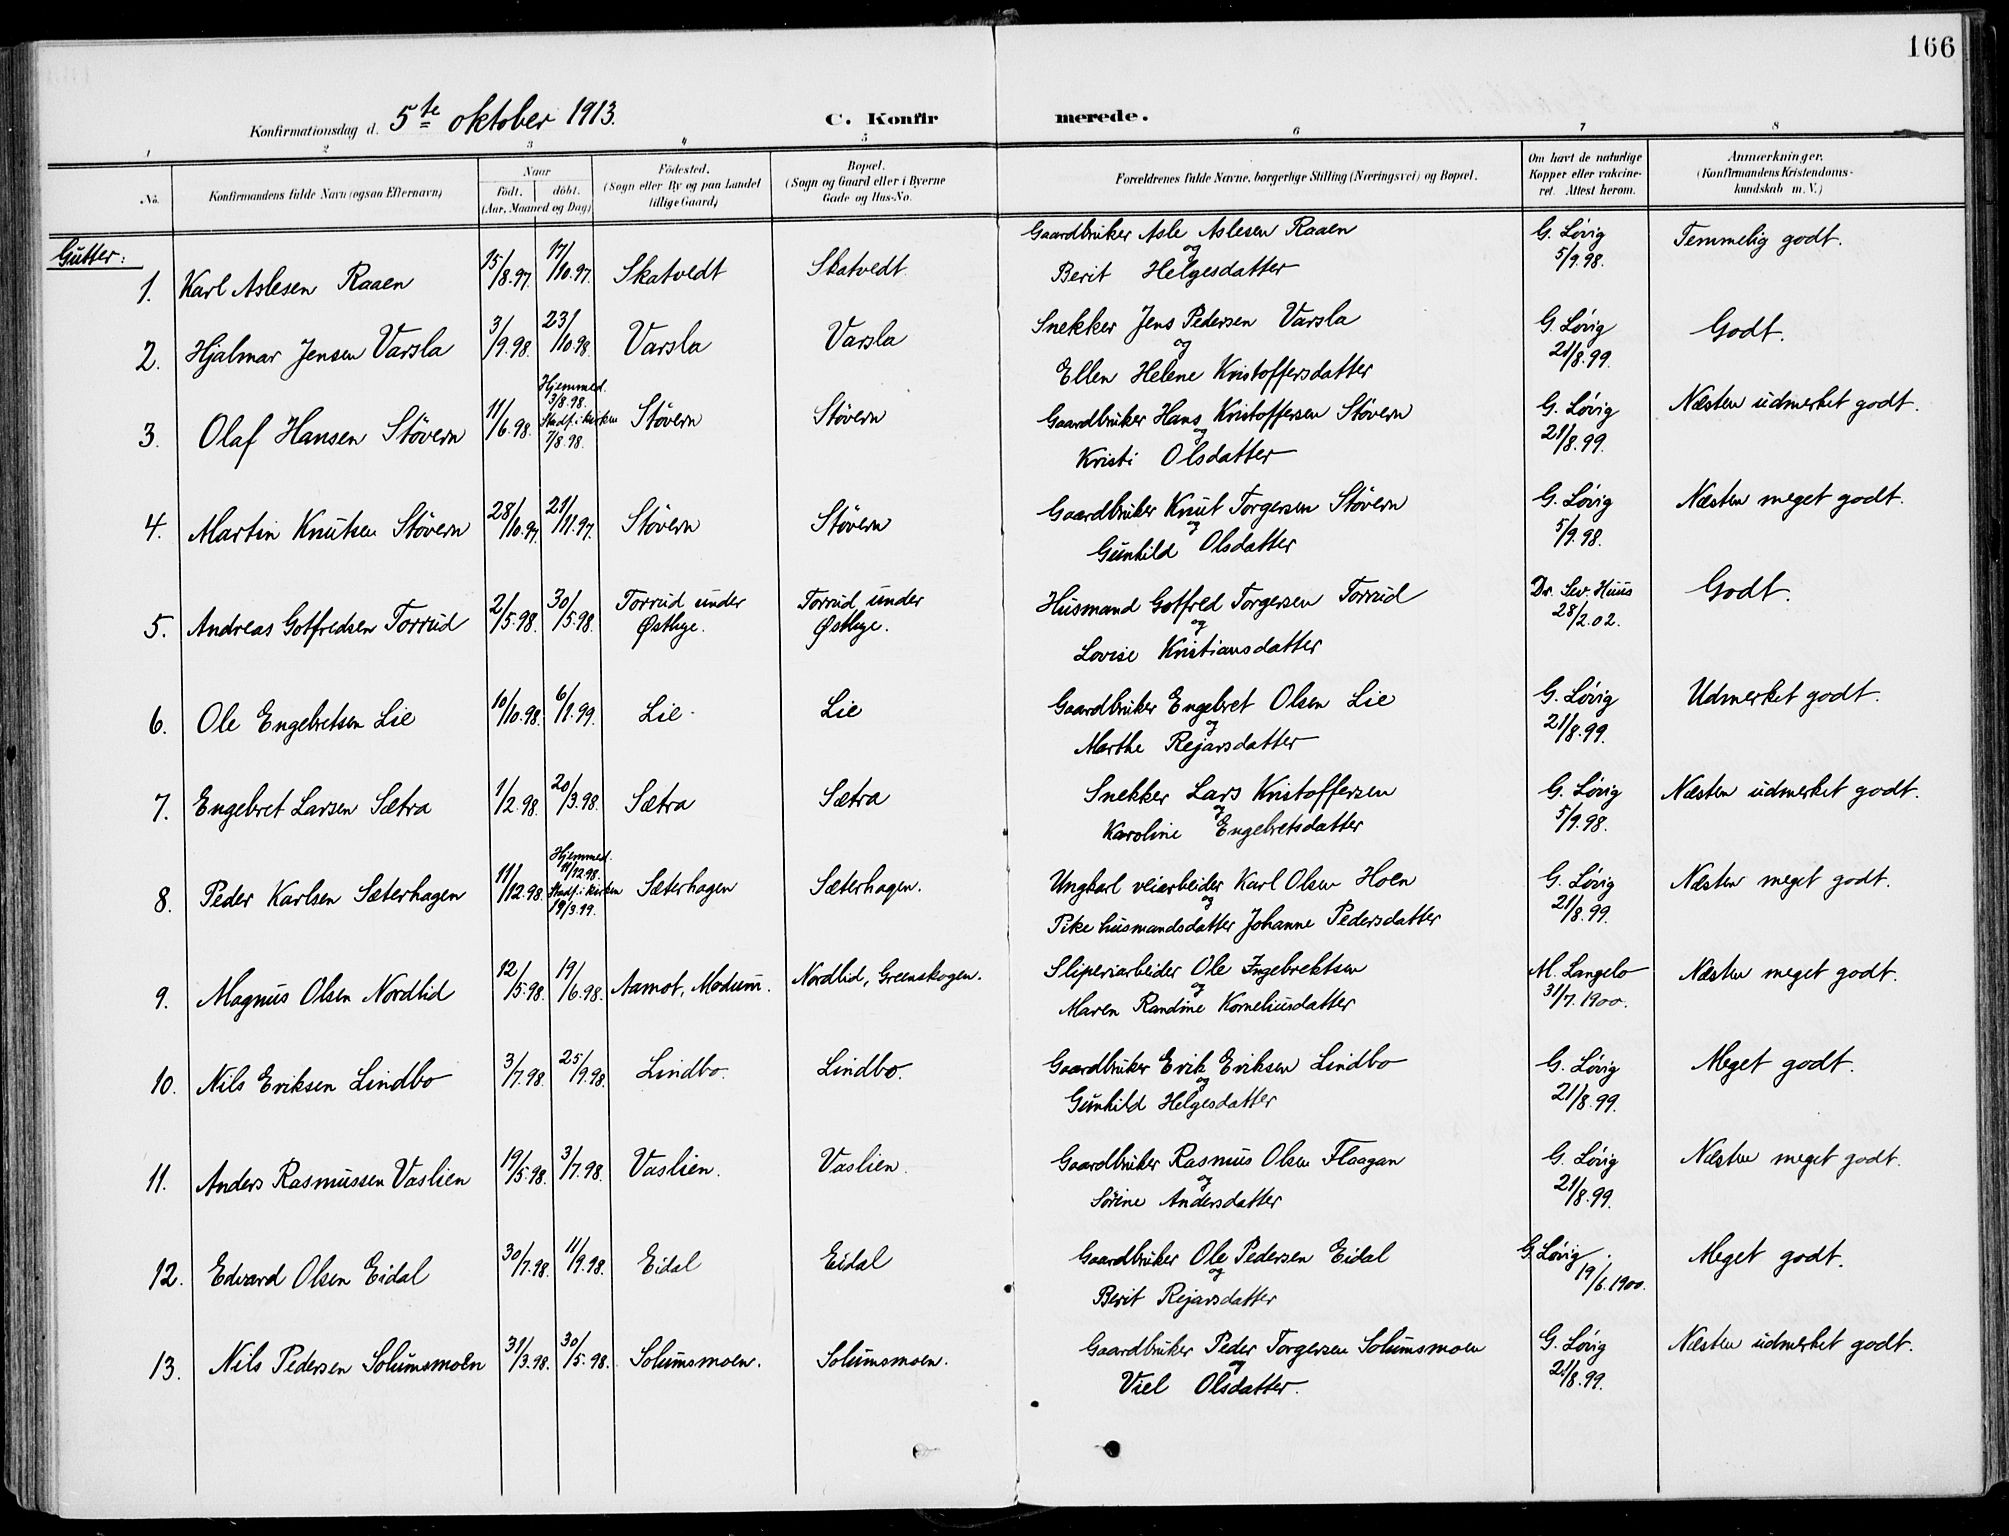 166
Konfirmationsdag d. 5te oktober 1913. C. Konfirmerede.
1 2 3 4 5 6 7 8
No. Konfirmandens fulde Navn (ogsaa Efternavn) Naar födt. döbt. (Aar, Maaned og Dag) Födested. (Sogn eller By og paa Landet tillige Gaard) Bopæl. (Sogn og Gaard eller i Byerne Gade og Hus-No. Forældrenes fulde Navne, borgerlige Stilling (Næringsvei) og Bopæl. Om havt de naturlige Kopper eller vakcineret. Attest herom. Anmærkninger. (Konfirmandens Kristendomskundskab m. V.)
Gutter:
1. Karl Aslesen Raaen 15/8.97. 17/10.97. Skatvedt Skatvedt Gaardbruker Asle Aslesen Raaen og Berit Helgesdatter G. Lövig 5/9.98. Temmelig godt.
2. Hjalmar Jensen Varsla 3/9.98. 23/10.98. Varsla Varsla Snekker Jens Pedersen Varsla og Ellen Helene Kristoffersdatter G. Lövig 21/8.99. Godt.
3. Olaf Hansen Stövern 11/6.98. Hjemmed. 3/8.98. Stadf. i kirken 7/8.98. Stövern Stövern Gaardbruker Hans Kristoffersen Stövern og Kristi Olsdatter G. Lövig 21/8.99. Næsten udmerket godt.
4. Martin Knutsen Stövern 28/10.97. 21/11.97. Stövern Stövern Gaardbruker Knut Torgersen Stövern og Gunhild Olsdatter G. Lövig 5/9.98. Næsten meget godt.
5. Andreas Gotfredsen Torrud 2/5.98. 30/5.98. Torrud under Østbye. Torrud under Østbye. Husmand Gotfred Torgersen Torrud og Lovise Kristiansdatter Dr. Sev. Huus 28/2.02. Godt.
6. Ole Engebretsen Lie 10/10.98. 6/1.99. Lie Lie Gaardbruker Engebret Olsen Lie og Marthe Rejarsdatter G. Lövig 21/8.99. Udmerket godt.
7. Engebret Larsen Sætra 1/2.98. 20/3.98. Sætra Sætra Snekker Lars Kristoffersen og Karoline Engebretsdatter G. Lövig 5/9.98. Næsten udmerket godt.
8. Peder Karlsen Sæterhagen 11/12.98. Hjemmed. 11/12.98. Stadf. i kirken 19/3.99. Sæterhagen Sæterhagen. Ungkarl veiarbeider Karl Olsen Hoen og Pike husmandsdatter Johanne Pedersdatter G. Lövig 21/8.99. Næsten meget godt.
9. Magnus Olsen Nordlid 12/5.98. 19/6.98. Aamot, Modum. Nordlid, Greenskogen. Sliperiarbeider Ole Ingebrektsen og Maren Randine Korneliusdatter M. Langelo 31/7.1900. Næsten meget godt.
10. Nils Eriksen Lindbo 3/7.98. 25/9.98. Lindbo. Lindbo. Gaardbruker Erik Eriksen Lindbo og Gunhild Helgesdatter G. Lövig 21/8.99. Meget godt.
11. Anders Rasmussen Vaslien 19/5.98. 3/7.98. Vaslien. Vaslien. Gaardbruker Rasmus Olsen Flaagan og Sörine Andersdatter G. Lövig 21/8.99. Næsten meget godt.
12. Edvard Olsen Eidal 30/7.98. 11/9.98. Eidal Eidal Gaardbruker Ole Pedersen Eidal og Berit Rejarsdatter G. Lövig 19/6.1900. Meget godt.
13. Nils Pedersen Solumsmoen 31/3.98. 30/5.98. Solumsmoen. Solumsmoen. Gaardbruker Peder Torgersen Solumsmoen og Viel Olsdatter. G. Lövig 21/8.99. Næsten udmerket godt.